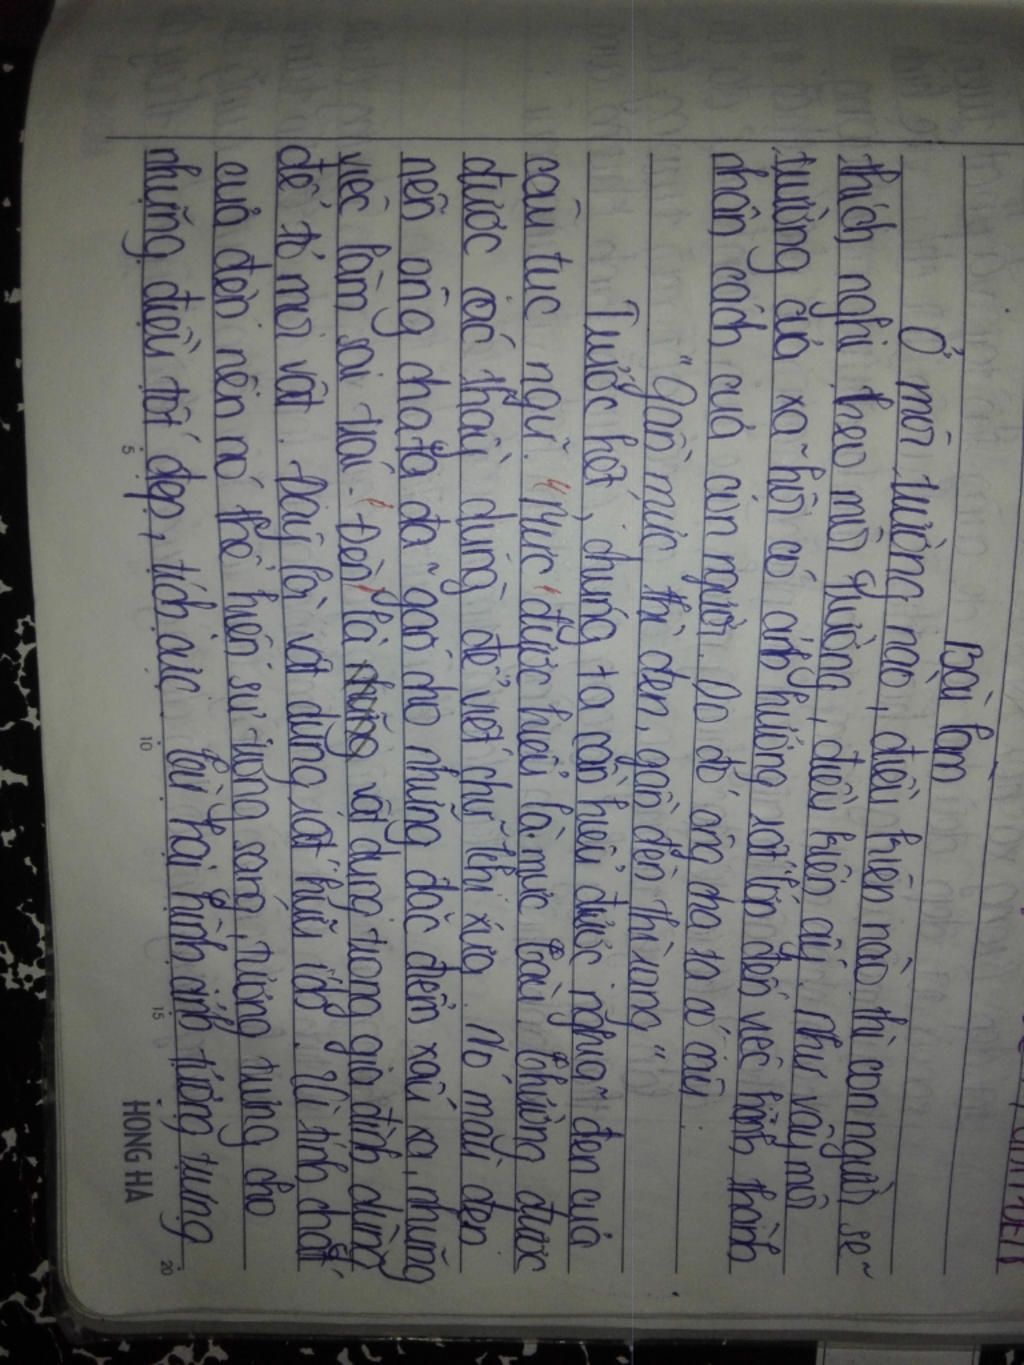 Bài làm
Ở môi trường nào, điều kiện nào thì con người sẽ
thích nghi theo môi trường, điều kiện ấy. Như vậy môi
trường của xã hội có ảnh hưởng rất lớn đến việc hình thành
nhân cách của con người. Do đó ông cha ta có câu:
"Gần mực thì đen, gần đèn thì rạng"
Trước hết, chúng ta cần hiểu được nghĩa đen của
câu tục ngữ. "Mực" được hiểu là mực tàu thường được
được các thầy dùng để viết chữ khi xưa. Nó màu đen
nên ông cha ta đã gán cho những đặc điểm xấu xa, những
việc làm sai trái. "Đèn" là vật dụng trong gia đình dùng
để tỏ mọi vật. Đây là vật dụng rất hữu ích. Vì tính chất
của đèn nên nó thể hiện sự trong sáng, tượng trưng cho
những điều tốt đẹp, tích cực. Lấy hai hình ảnh tượng trưng
5
10
15
20
HONG HA